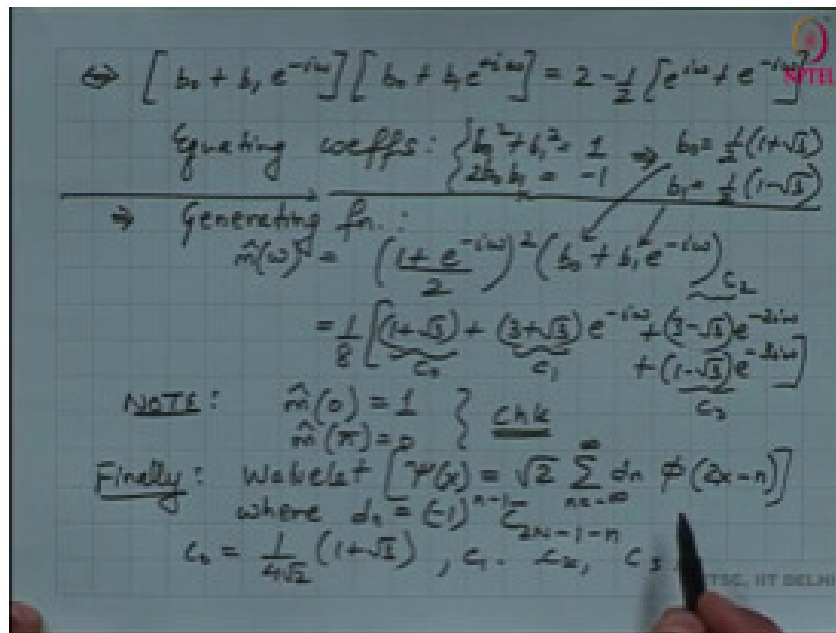 ⇔ [b₀ + b₁ e^{-iω}] [b₀ + b₁ e^{+iω}] = 2 - 1/2 [e^{iω} + e^{-iω}]
NPTEL
Equating coeffs: { b₀² + b₁² = 1 ⇒ b₀ = 1/2 (1+√3)
{ 2b₀ b₁ = -1 b₁ = 1/2 (1-√3)
⇒ Generating fn.:
m̂(ω) = ((1 + e^{-iω})/2)² (b₀ + b₁ e^{-iω})
C₂
= 1/8 [(1+√3) + (3+√3) e^{-iω} + (3-√3) e^{-2iω}
C₀ C₁ + (1-√3) e^{-3iω}]
C₃
NOTE: m̂(0) = 1
m̂(π) = 0 } Chk
Finally: Wavelet [Ψ(x) = √2 ∑_{n=-∞}^{∞} dn φ(2x-n)]
where dn = (-1)^{n-1} C_{2N-1-n}
C₀ = 1/(4√2) (1+√3), C₁, C₂, C₃
TSC, IIT DELHI